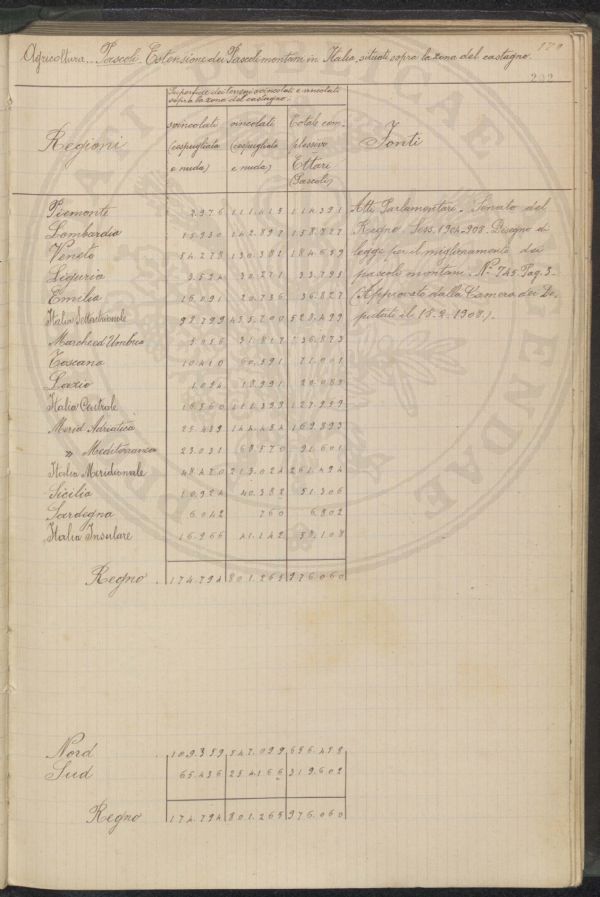 179
Agricoltura... Pascoli. Estensione dei Pascoli montani in Italia, situati sopra la zona del castagno.
202
Superficie dei terreni svincolati e vincolati
sopra la zona del castagno.
Regioni svincolati (cespugliata e nuda) vincolati (cespugliata e nuda) Totale complessivo Ettari (Pascoli) Fonti
Piemonte 2.976 111.415 114.391 Atti Parlamentari. Senato del
Lombardia 15.930 142.897 158.827 Regno. Sess. 1904-908. Disegno di
Veneto 54.278 130.381 184.659 legge per il miglioramento dei
Liguria 3.524 30.271 33.795 pascoli montani. N.º 745 Pag. 3.
Emilia 16.091 20.736 36.827 (Approvato dalla Camera dei De-
Italia Settentrionale 92.799 435.700 528.499 putati il 15.2.1908.)
Marche ed Umbria 5.056 31.817 36.873
Toscana 10.410 60.591 71.001
Lazio 1.094 18.991 20.085
Italia Centrale 16.560 111.399 127.959
Merid. Adriatica 25.439 144.454 169.893
" Mediterranea 23.031 68.570 91.601
Italia Meridionale 48.470 213.024 261.494
Sicilia 10.924 40.382 51.306
Sardegna 6.042 760 6.802
Italia Insulare 16.966 41.142 58.108
Regno 174.794 801.265 976.060
Nord 109.359 547.099 656.458
Sud 65.436 254.166 319.602
Regno 174.794 801.265 976.060